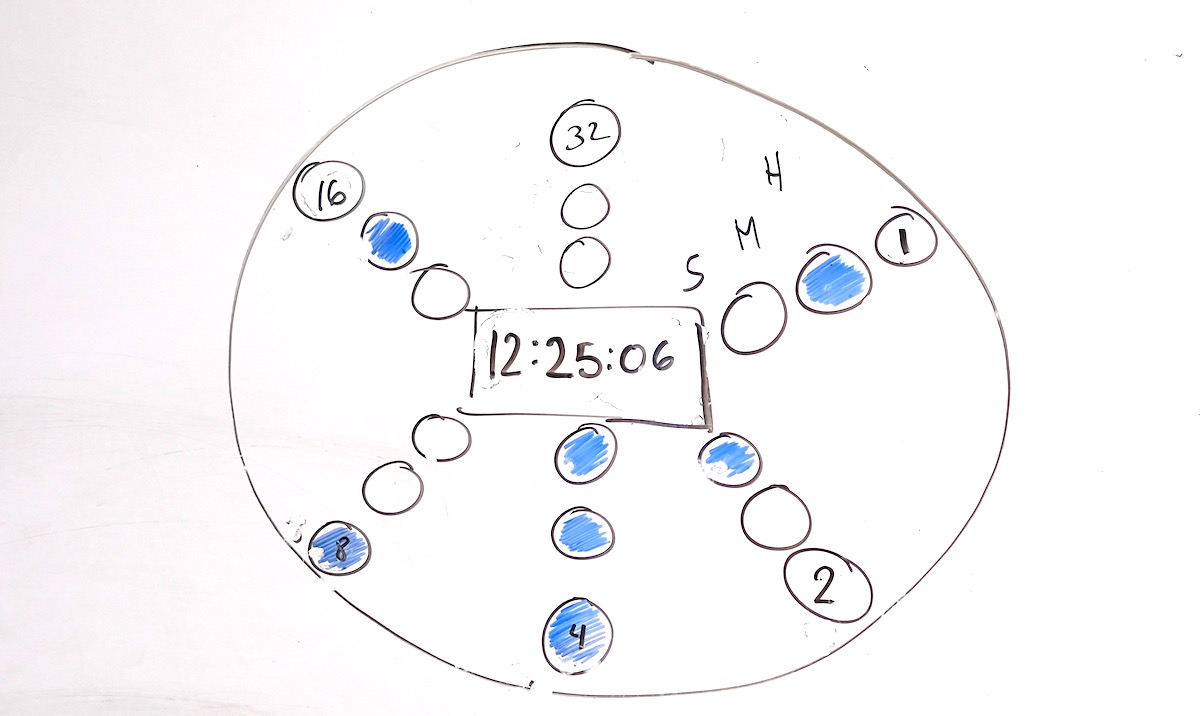 32
16
H
M
S
1
12:25:06
8
4
2